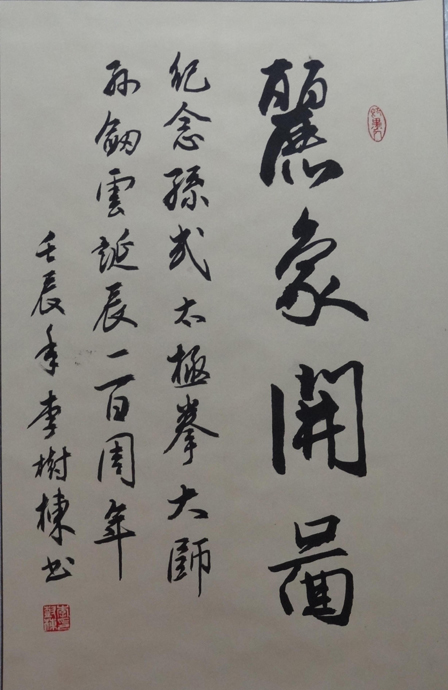 麗象開圖
紀念孫式太極拳大師
孙劔雲誕辰一百周年
壬辰年李樹棟书